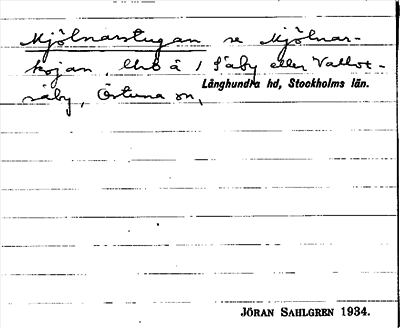 Mjölnarstugan se Mjölnar-
kojan, lht å 1 Säby eller Vallox-
säby, Östuna sn,
Långhundra hd, Stockholms län.
JÖRAN SAHLGREN 1934.